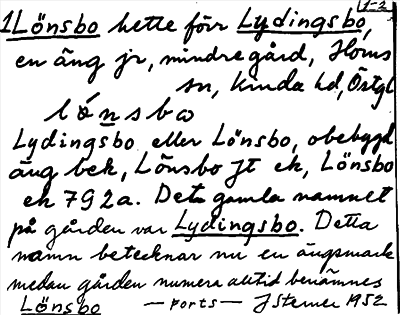 1-2
1 Lönsbo hette förr Lydingsbo,
en äng jr, mindre gård, Horns
sn, Kinda hd, Östgl
lo̍nsbω
Lydingsbo eller Lönsbo, obebygd
äng bek, Lönsbo jt ek, Lönsbo
ek 792a. Det gamla namnet
på gården var Lydingsbo. Detta
namn betecknar nu en ängsmark
medan gården numera alltid benämnes
Lönsbo — ports — J Sterner 1952